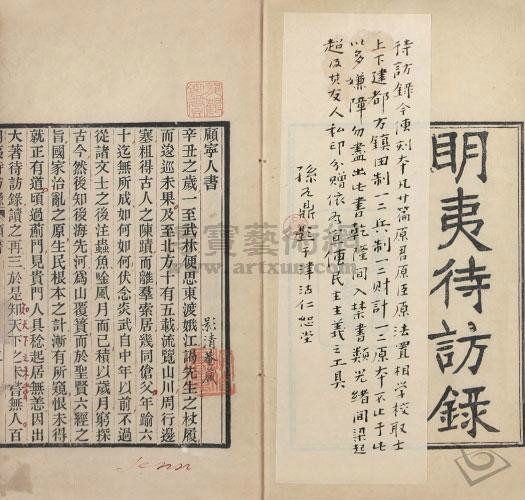 明夷待訪錄
待訪錄今傳刻本凡廿篇原君原臣原法置相學校取士
上下建都方鎮田制一二兵制一二財計一二原本不止于此
以多嫌障勿盡出也乾隆間入禁書類光緒間梁起
超及其友人私印分贈依为宣傳民主主義之工具
孫九鼎 于津沽仁恕堂
顧寧人書
辛丑之歲一至武林便思東渡娥江謁先生之杖履
而逡巡未果及至北方十有五載流覽山川周行邊
塞粗得古人之陳蹟而離羣索居幾同傖父年踰六
十迄無所成如何如何伏念炎武自中年以前不過
從諸文士之後注蟲魚吟風月而已積以歲月窮探
古今然後知後海先河為山覆簣而於聖賢六經之
旨國家治亂之原生民根本之計漸有所窺恨未得
就正有道頃過薊門見貴門人具稔起居無恙因出
大著待訪錄讀之再三於是知天下之未嘗無人百
博寶藝術網
www.artxun.com